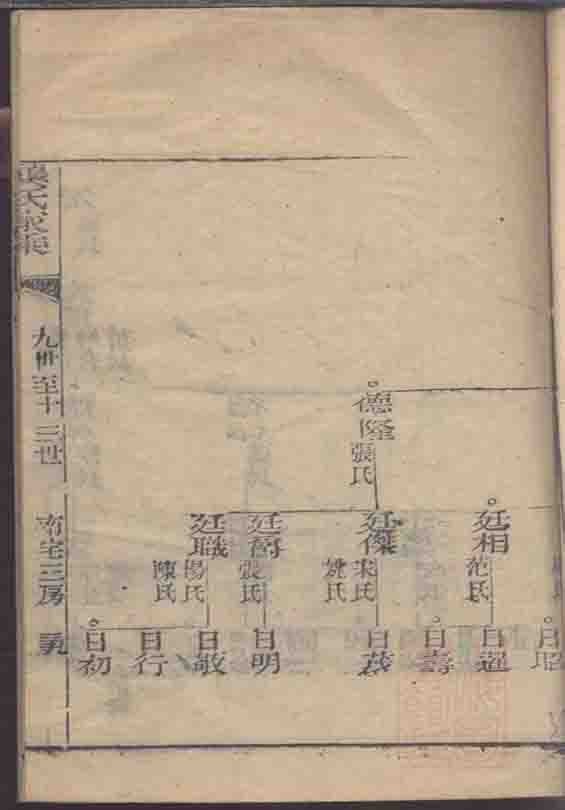 德隆
張氏
廷相
范氏
廷傑
宋氏
姚氏
廷爵
張氏
廷職
楊氏
陳氏
日昭
日暹
日壽
日茂
日明
日敬
日行
日初
氏家
九世至十三世
南宅三房